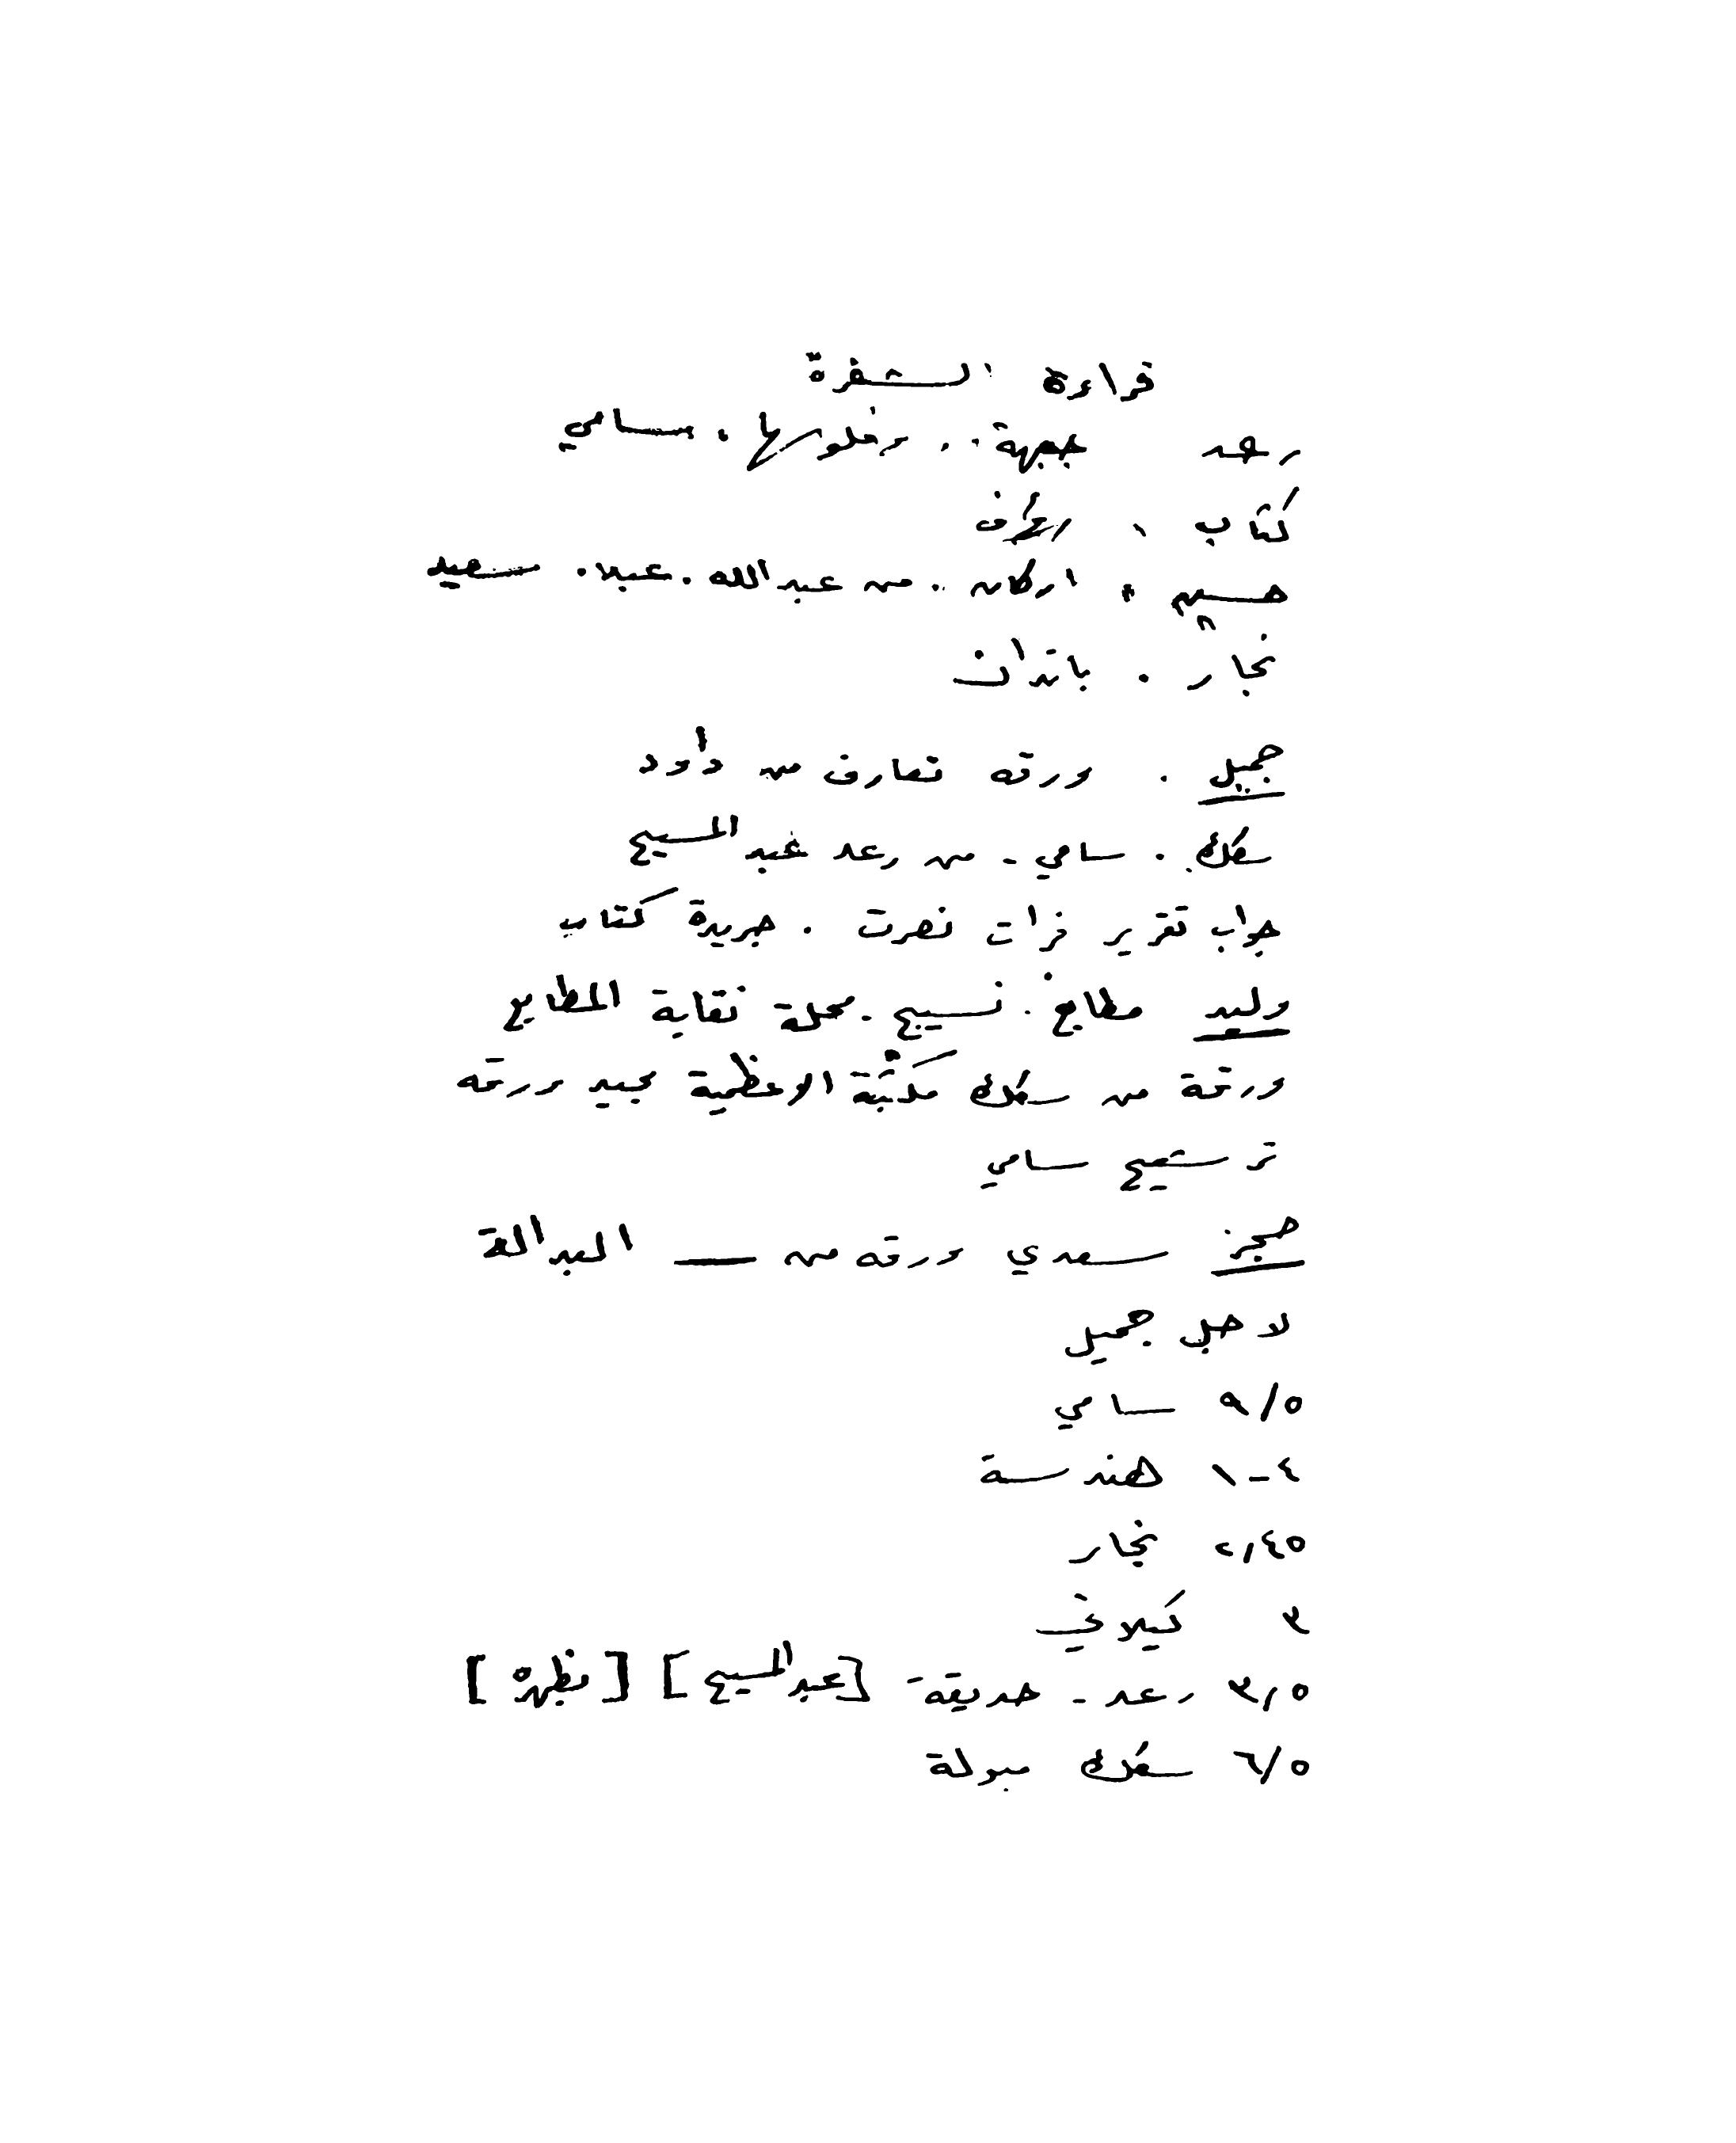 قراءة الشفرة
رعد جبهة . . ، سامي
كتاب
حسين اركان . . من عبدالله . عبلا . سعيد
نجار . باتدان
جميل . ورقه تعارف من داود
سكك . سامي - من رعد عبد المسيح
جواب تقرير فرات نصرت . جريدة كتاب
وليد مطابع . نسيج . محلة نقابة المطابع
ورقة من سكك مكتبة الاعظمية مجيد ورقه
سامي
حجز سعدي ورقه من — العدالة
لاجل جميل
٩/٥ سامي
١-٤ هندسة
٢,٤٥ نجار
٣ كيلاني
٣,٥ رعد - حديقة [عبد المسيح] [نظيرة]
٦/٥ سكك